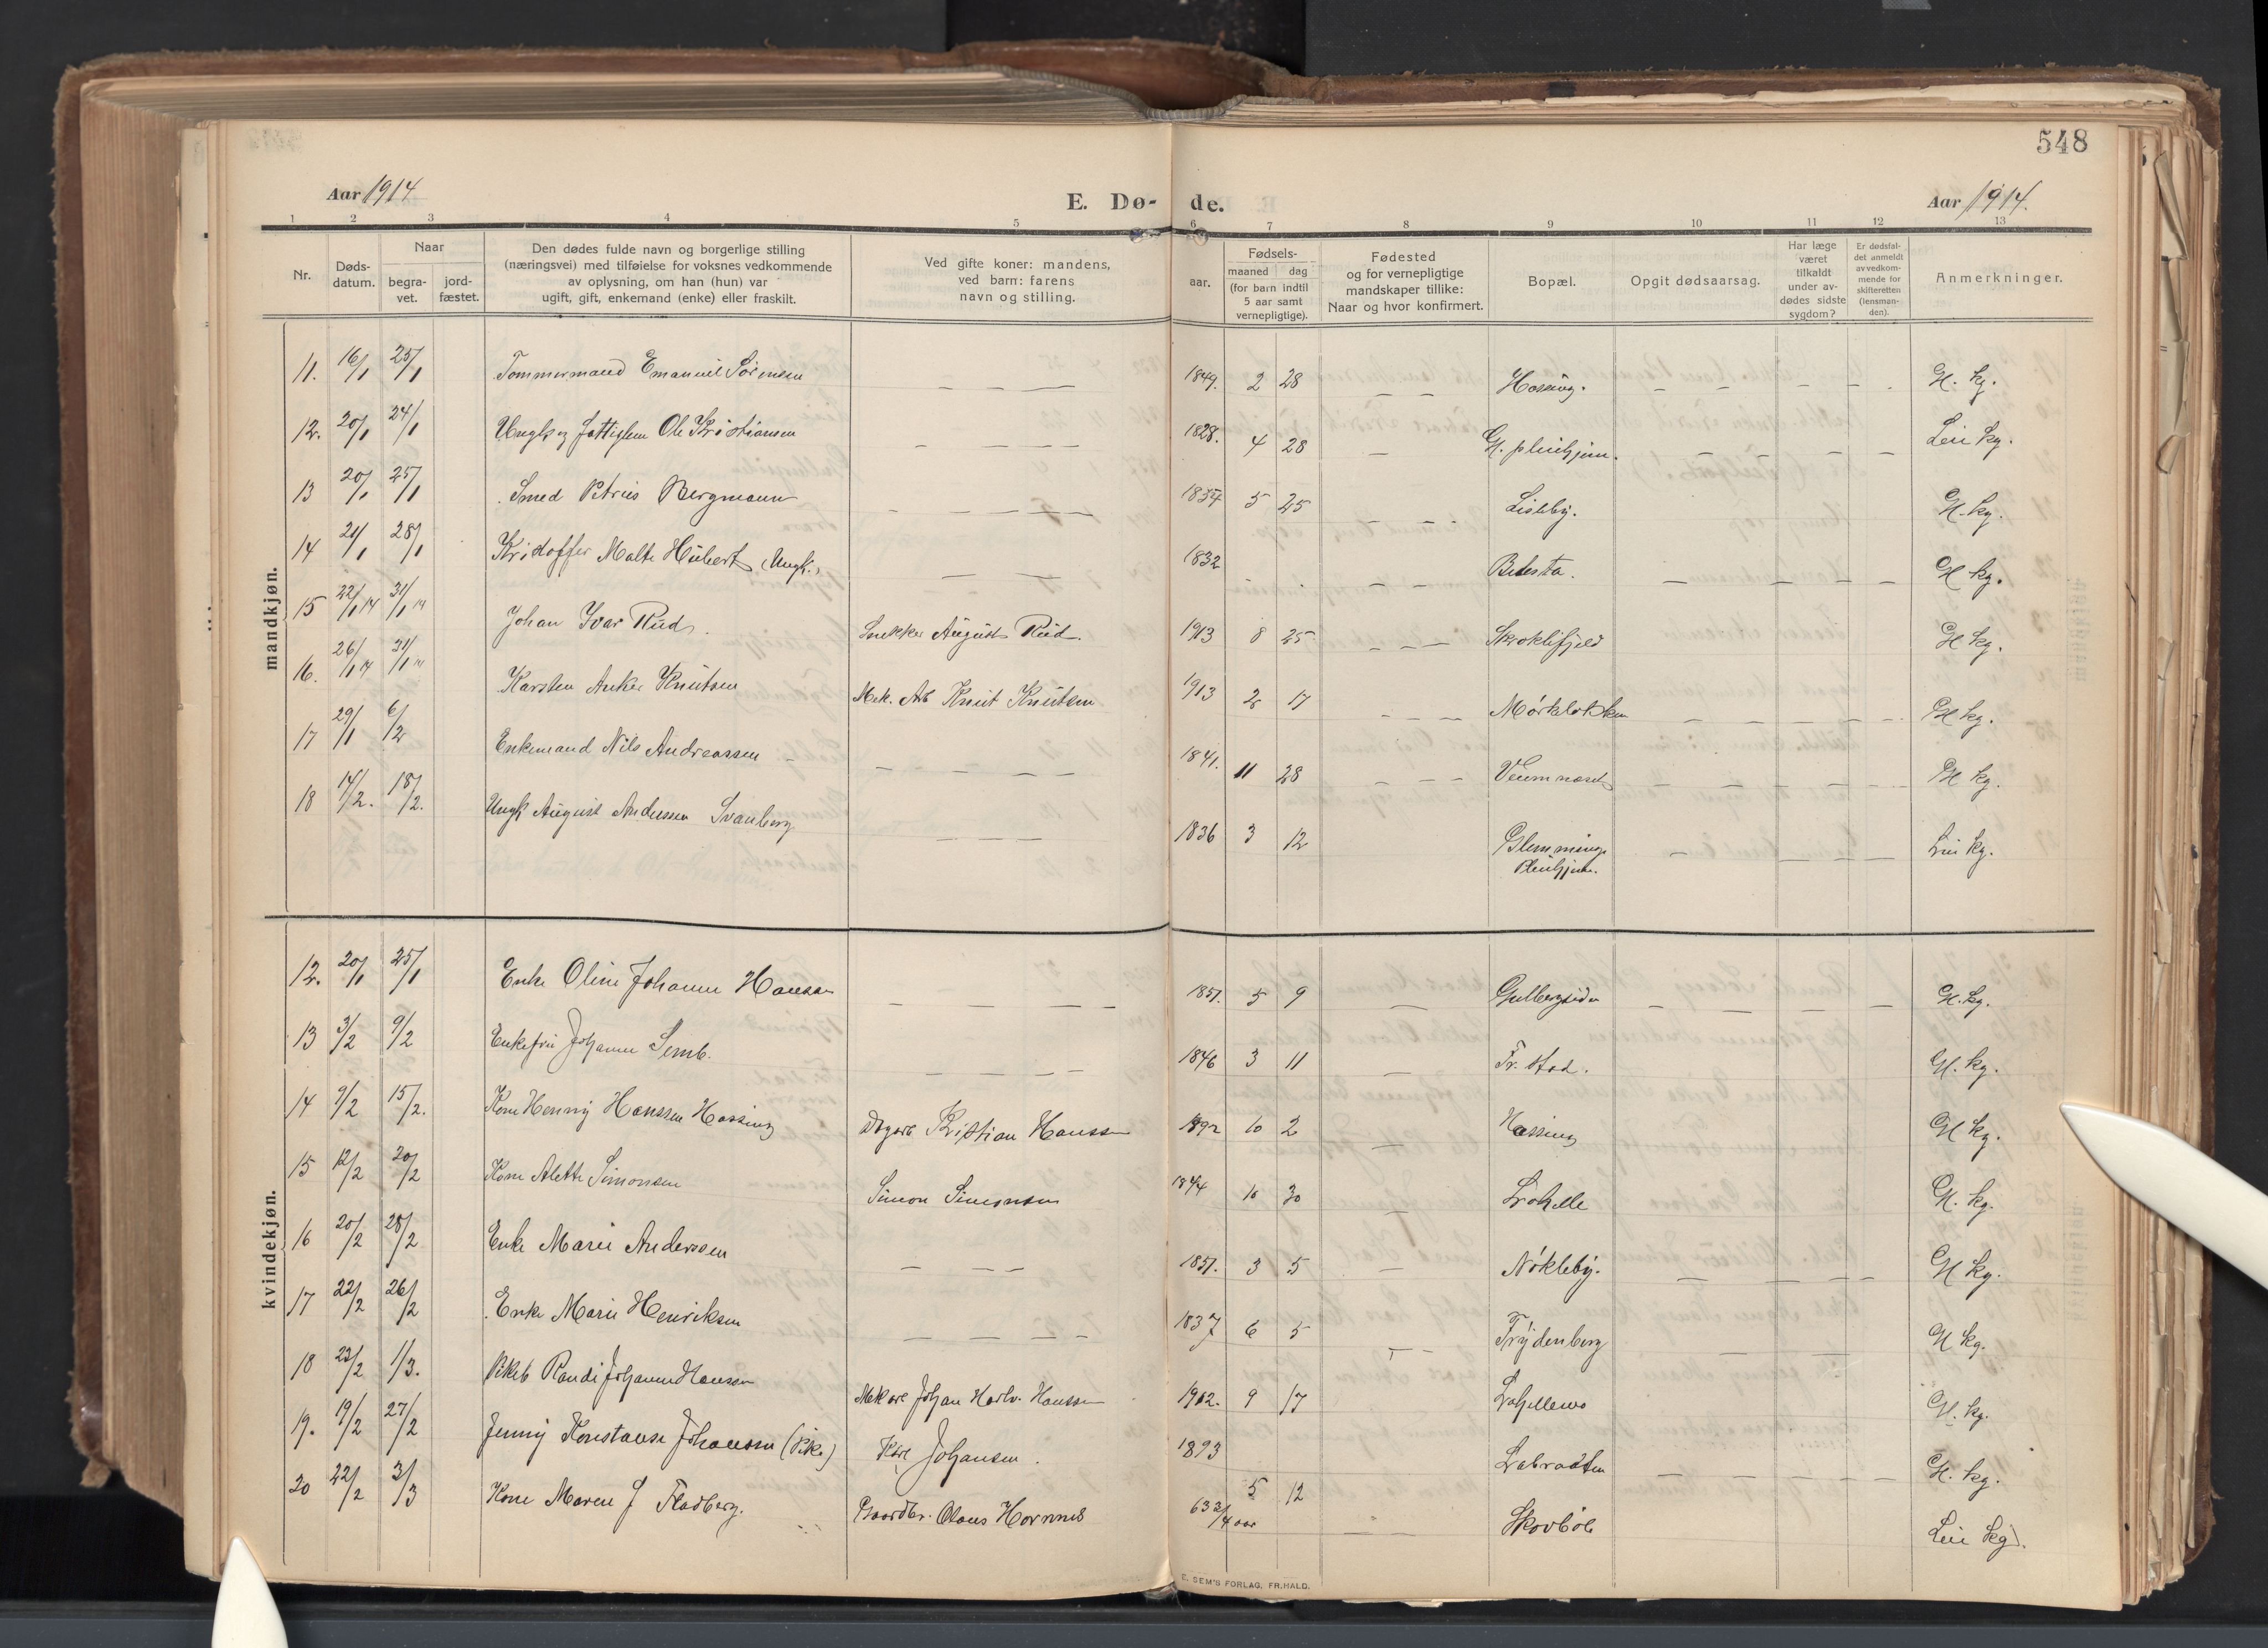 548
Aar 1914
E. Dø- de.
Aar 1914.
1 2 3 4 5 6 7 8 9 10 11 12 13
Nr.
Døds-
datum.
Naar
begra-
vet.
jord-
fæstet.
Den dødes fulde navn og borgerlige stilling
(næringsvei) med tilføielse for voksnes vedkommende
av oplysning, om han (hun) var
ugift, gift, enkemand (enke) eller fraskilt.
Ved gifte koner: mandens,
ved barn: farens
navn og stilling.
Fødsels-
aar.
maaned dag
(for barn indtil
5 aar samt
vernepligtige).
Fødested
og for vernepligtige
mandskaper tillike:
Naar og hvor konfirmert.
Bopæl.
Opgit dødsaarsag.
Har læge
været
tilkaldt
under av-
dødes sidste
sygdom?
Er dødsfal-
det anmeldt
av vedkom-
mende for
skifteretten
(lensman-
den).
Anmerkninger.
mandkjøn.
11. 16/1 25/1 Tømmermand Emanuel Sörensen — — — — 1849. 2 28 — — Hassing. — — — — Gl. kg.
12. 20/1 24/1 Ole Kristiansen — — — — 1828. 4 28 — Gl. pleiehjem. — — — — Leie kg.
13 20/1 25/1 Smed Petrus Bergmann — — — — 1834 5 25 — — — Lisleby. Gl. kg.
14 21/1 28/1 Kristoffer Malte Hubert (Ungk.) — — 1832 — — — — — — Gl kg.
15 22/1 14 31/1 14 Johan Ivar Rud. Snekker August Rud. 1913 8 25 — — — Gl kg.
16. 26/1 14 31/1 14 Karsten Anker Knutsen Mek. Arb Knut Knutsen 1913 2 17 — — — — — — — Gl kg.
17 29/1 6/2 Enkemand Nils Andreassen — — — — — 1841. 11 28 — — — Veumnaset — — — — Gl kg.
18 14/2. 18/2. Ungk August Andersen Svanberg — — — 1836 3 12 Glemminge — — — — Leie kg.
Pleiehjem.
kvindekjøn.
12. 20/1 25/1 Enke Oline Johanne Hansen — — — — 1851. 5 9 — — — — — Gl. kg.
13 3/2 9/2 Enkefru Johanne Semb. — — — — 1846 3 11 — Fr. stad. Gl. kg.
14 9/2 15/2. Kone Henny Hanssen Hassing Kristian Hanssen 1892 10 2 — Hassing Gl kg.
15 12/2 20/2 Kone Alette Simonsen Simon Simonsen 1844 10 30 — Lahelle Gl. kg.
16 20/2 28/2 Enke Marie Anderssen — — — 1851. 3 5 — Nökleby. — — — — Gl kg.
17 22/2 26/2 Enke Marie Henriksen — — — — 1837 6 5 — — Trydenberg — — Gl kg.
18 23/2 1/3. Pikeb Randi Johanne Hansen Johan Hansen 1912. 9 17 Gl. kg.
19. 19/2 27/2 Jenny Konstanse Johansen (Pike) Karl Johansen. 1893 5 12 Labraaten — — — — Gl. kg.
20 22/2 3/3 Kone Maren J Fladberg. Gaardbr. Olaus Hornnes 63 3/4 aar — — Skovböle Leie kg.
E. SEM'S FORLAG, FR.HALD.